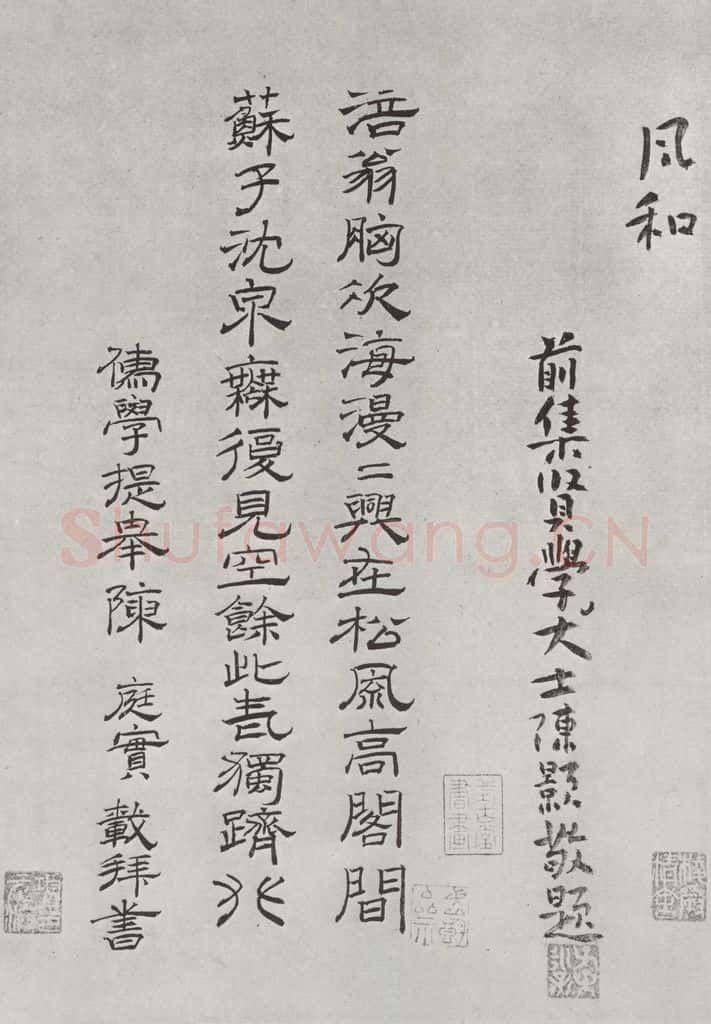 風和
前集賢學大士陳顥敬題
涪翁胸次海漫〻興在松風高閣間
蘇子沈泉無復見空餘此獨躋
儒學提舉陳 庭實 載拜書
Shufawang.CN